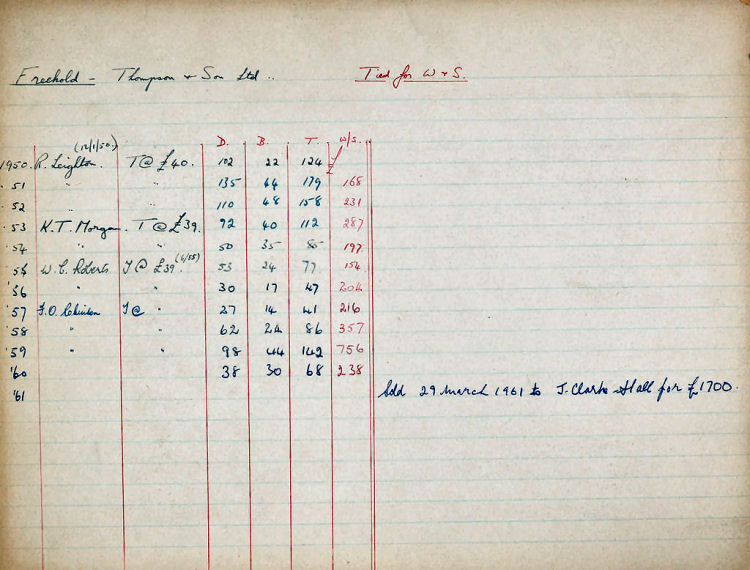 Freehold - Thompson & Son Ltd .. Tied for W & S.
(12/1/50.) D. B. T. W/S.
1950. R. Leighton. T @ £40. 102 22 124
'51 " 135 44 179 168
'52 " 110 48 158 231
'53 K.T. Morgan. T @ £39. 72 40 112 287
'54 " " 50 35 85 197
'55 W. C. Roberts T @ £39 (6/55) 53 24 77 154
'56 " " 30 17 47 204
'57 F.O. T @ " 27 14 41 216
'58 " " 62 24 86 357
'59 " " 98 44 142 756
'60 " " 38 30 68 238
'61 Sold 29 March 1961 to J. Clarke-Hall for £1700.